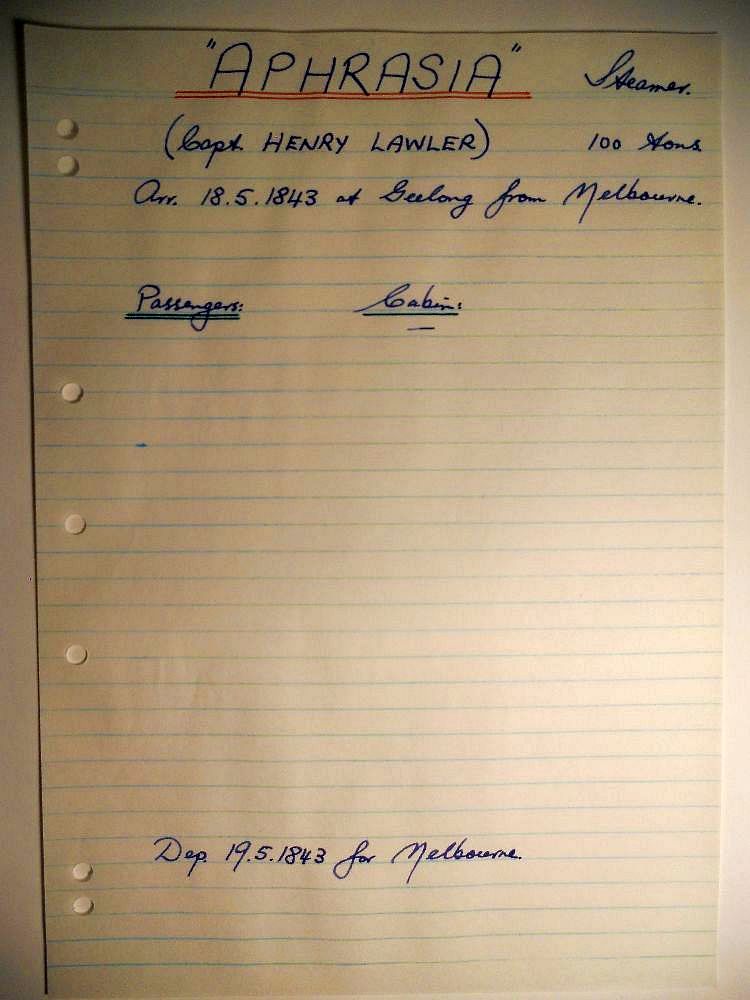 "APHRASIA" Steamer.
(Capt. HENRY LAWLER) 100 tons
Arr. 18.5.1843 at Geelong from Melbourne.
Passengers: Cabin:
—
Dep. 19.5.1843 for Melbourne.